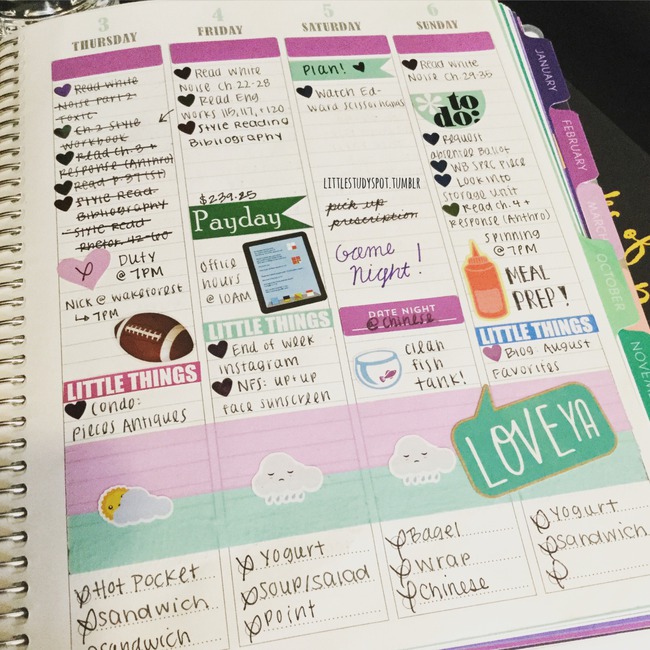 3
THURSDAY
Read White
Noise Part 2
Toxic
Ch 2 Style
Workbook
Read Ch. 3 +
Response (Anthro)
Style Read.
Bibliography
Style Read
Duty
@ 7PM
Nick @ Wakeforest
↳ 7PM
LITTLE THINGS
Condo:
Pieces Antiques
Hot Pocket
Sandwich
Sandwich
4
FRIDAY
Read White
Noise Ch. 22-28
Read Eng
Works 115, 117, +120
Style Reading
Bibliography
$239.25
Payday
Office
hours
@ 10AM
LITTLE THINGS
End of week
Instagram
NFS: up+up
face sunscreen
Yogurt
Soup/Salad
Point
5
SATURDAY
Plan!
Watch Ed-
ward Scissorhands
LITTLESTUDYSPOT.TUMBLR
pick up
prescription
Game
Night!
DATE NIGHT
@ Chinese
clean
fish
tank!
Bagel
Wrap
Chinese
6
SUNDAY
Read White
Noise Ch. 29-35
to
do:
Request
absentee Ballot
WB Spec Piece
Look into
Storage Unit
Read Ch. 4 +
Response (Anthro)
Spinning
@ 7PM
MEAL
PREP!
LITTLE THINGS
Blog August
Favorites
LOVE YA
Yogurt
Sandwich
JANUARY
FEBRUARY
MARCH
OCTOBER